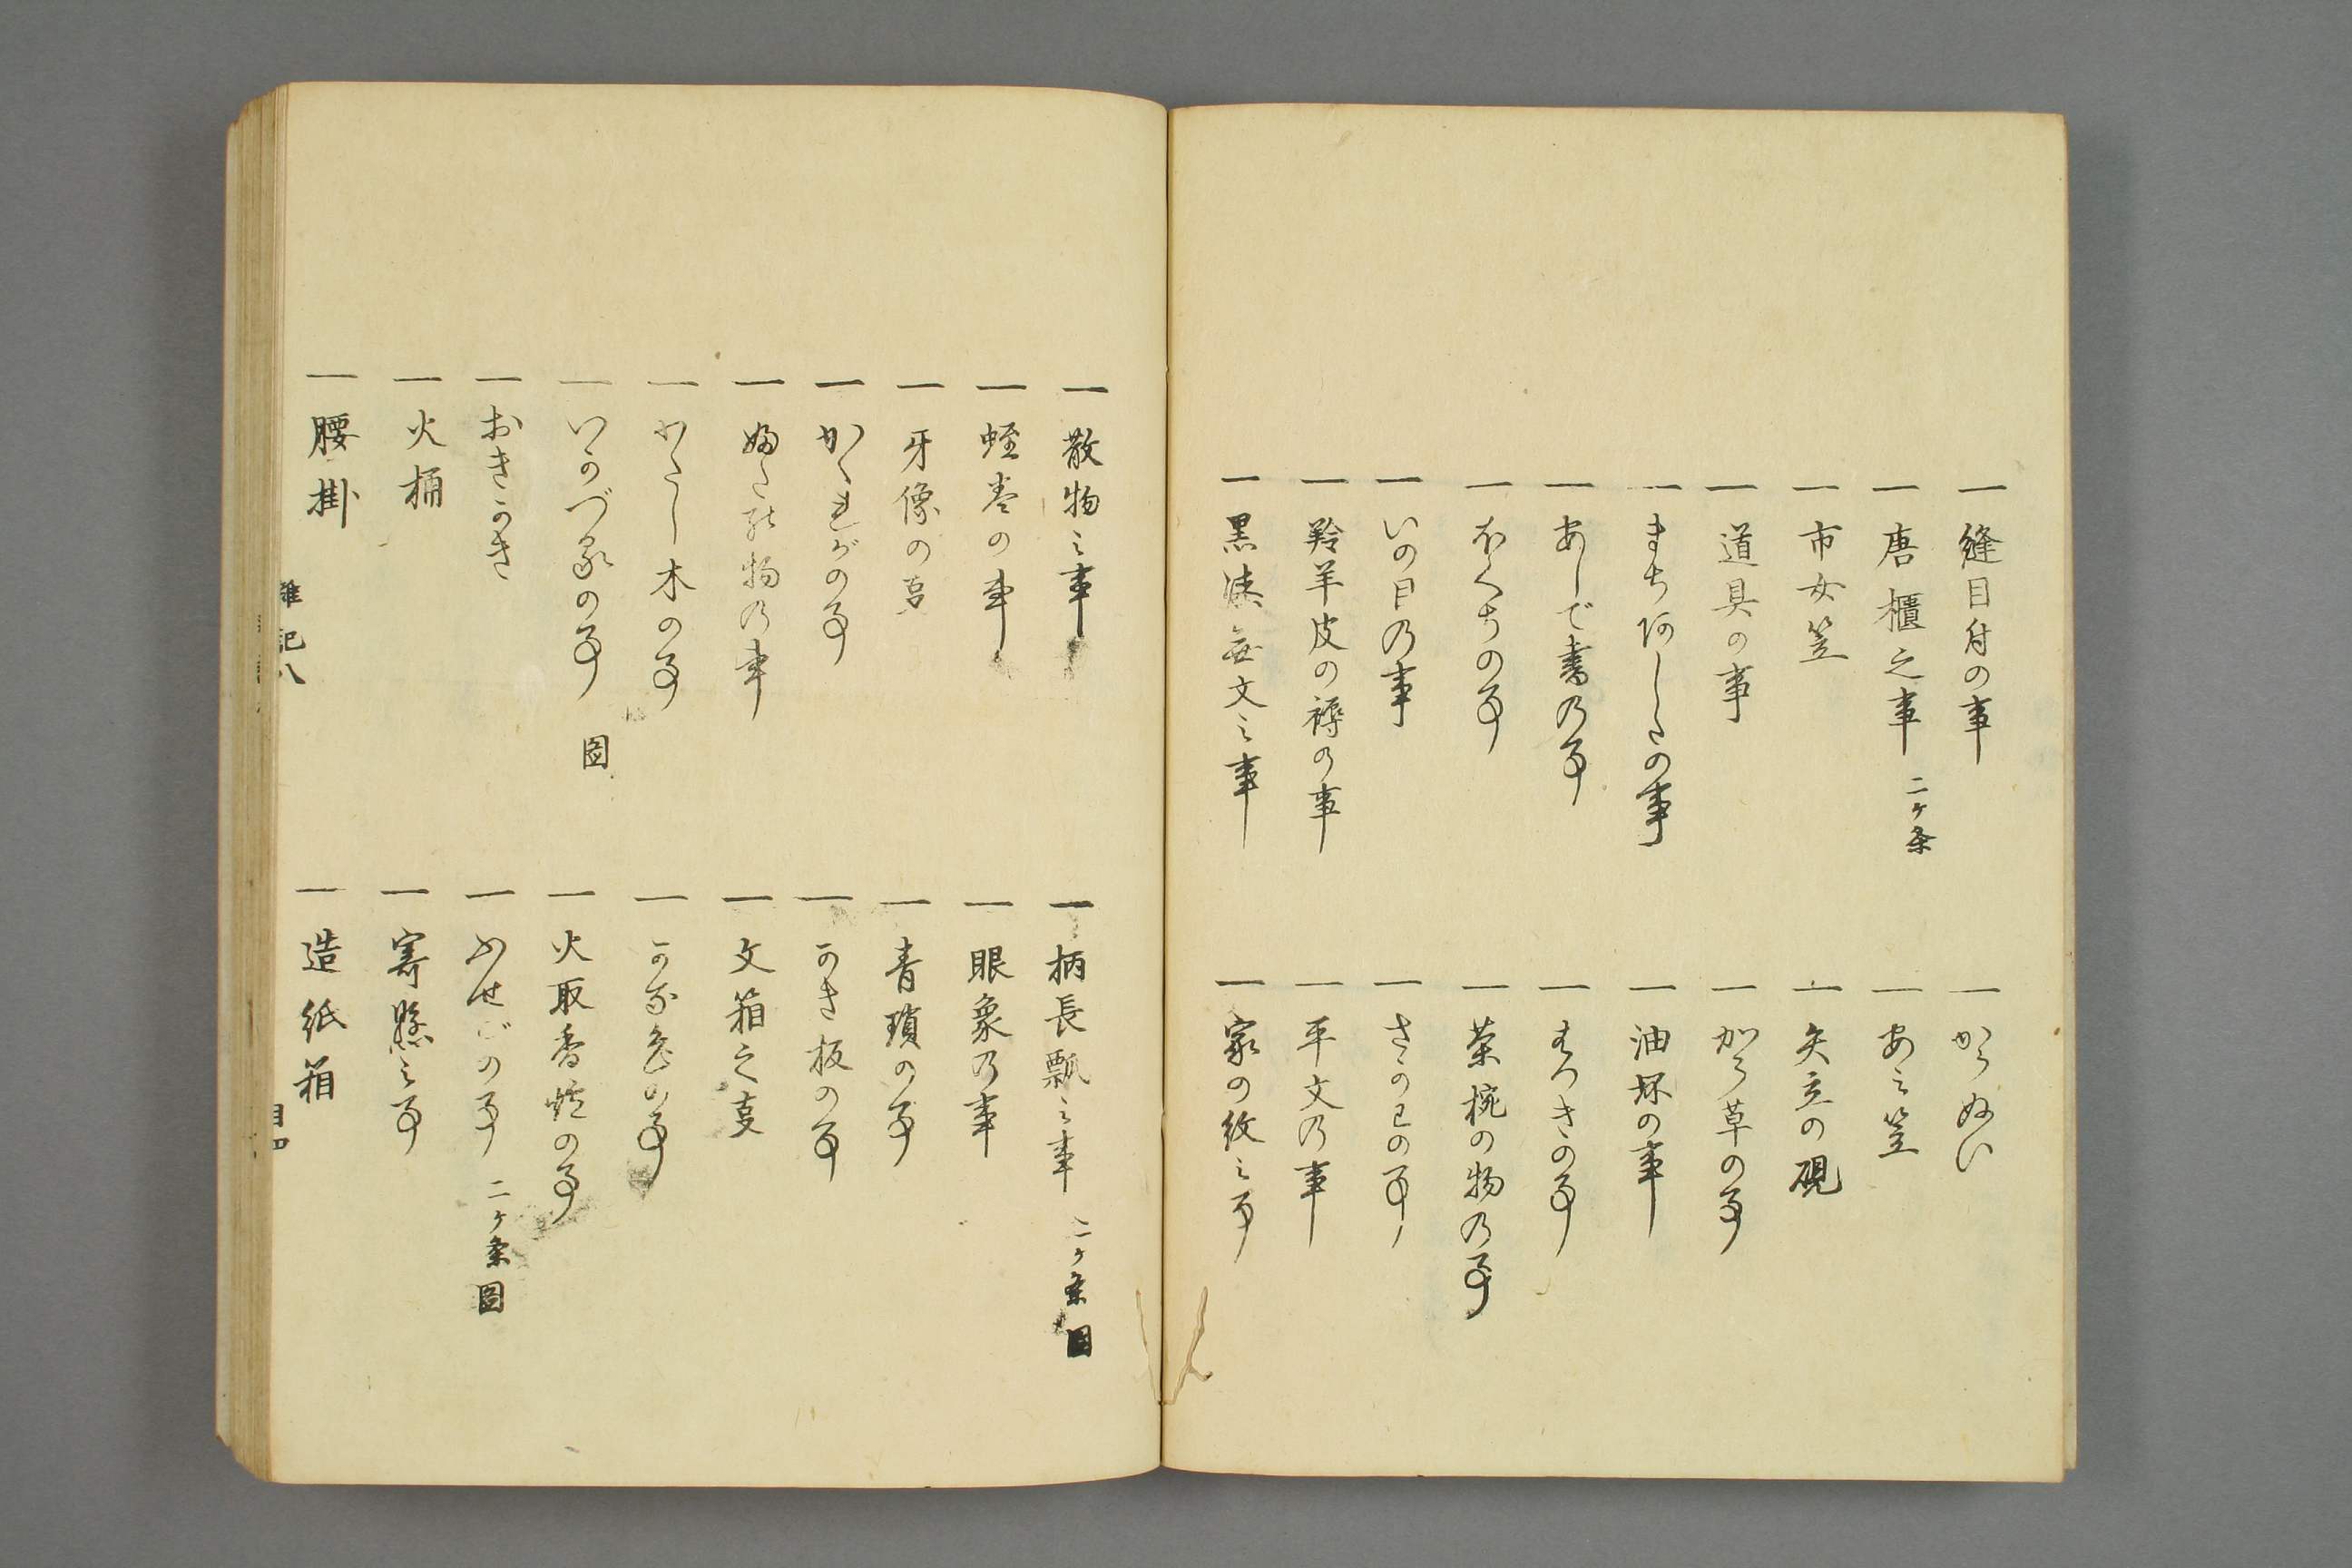 一 縫目付の事
一 からぬい
一 唐櫃之事 二ケ条
一 あミ笠
一 市女笠
一 矢立の硯
一 道具の事
一 から草の事
一 まち阿したの事
一 油坏の事
一 あしで書の事
一 ほくちの事
一 茶椀の物の事
一 いの目の事
一 羚羊皮の褥の事
一 平文の事
一 黒漆無文之事
一 家の紋之事
一 散物之事
一 柄長瓢之事 二ケ条 図
一 蛭巻の事
一 眼象の事
一 牙像の事
一 青瑣の事
一 かくれがの事
一 かき板の事
一 文箱之事
一 わたし木の事
一 火取香炉の事
一 おきかき
一 ふせごの事 二ケ条 図
一 火桶
一 寄懸之事
一 腰掛
一 造紙箱
雑記八
目四